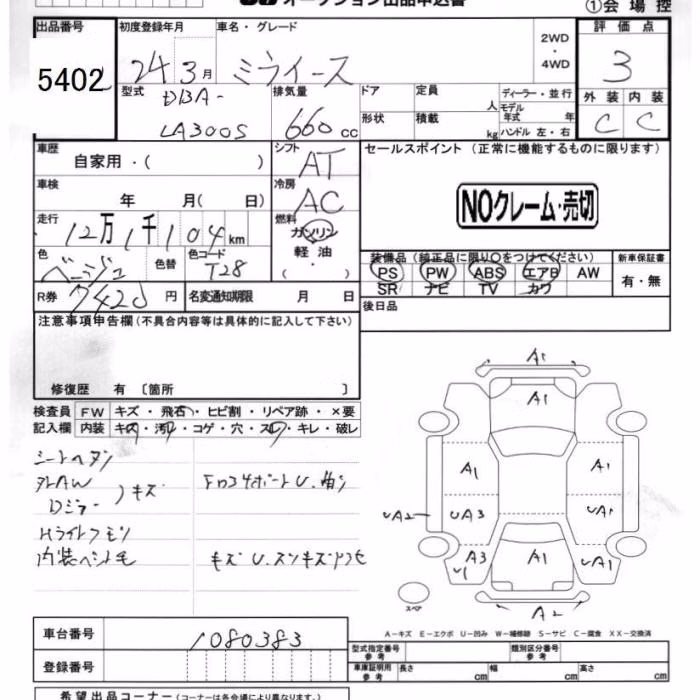 オークション出品申込書
①会場控
出品番号
5402
初度登録年月
24 3月
車名・グレード
ミライース
2WD
・
4WD
評価点
3
外装 内装
C C
型式
DBA-
LA300S
排気量
660 cc
ドア
形状
定員
人
積載
kg
ディーラー・並行
モデル年式 年
ハンドル 左・右
車歴
自家用・( )
シフト
AT
セールスポイント(正常に機能するものに限ります)
NOクレーム・売切
車検
年 月( 日)
冷房
AC
走行
12万1千104km
燃料
ガソリン
軽油
( ・ )
色
ベージュ
色替
色コード
T28
装備品(純正品に限り○をつけてください)
PS PW ABS エアB AW
SR ナビ TV カワ
新車保証書
有・無
R券
円
名変通知期限 月 日
後日品
注意事項申告欄(不具合内容等は具体的に記入して下さい)
修復歴 有〔箇所 〕
検査員記入欄
FW キズ・飛石・ヒビ割・リペア跡・×要
内装 キズ・汚レ・コゲ・穴・スレ・キレ・破レ
キズ
Dミラー
Hライトクモリ
A1
A1
A1
A1
UA2
UA3
UA1
A3
U1
A1
UA1
A2
スペア
A-キズ E-エクボ U-凹み W-補修跡 S-サビ C-腐食 XX-交換済
車台番号
1080383
登録番号
型式指定番号 参考
類別区分番号 参考
車庫証明用 参考
長さ cm
幅 cm
高さ cm
希望出品コーナー(コーナーは各会場により異なります。)